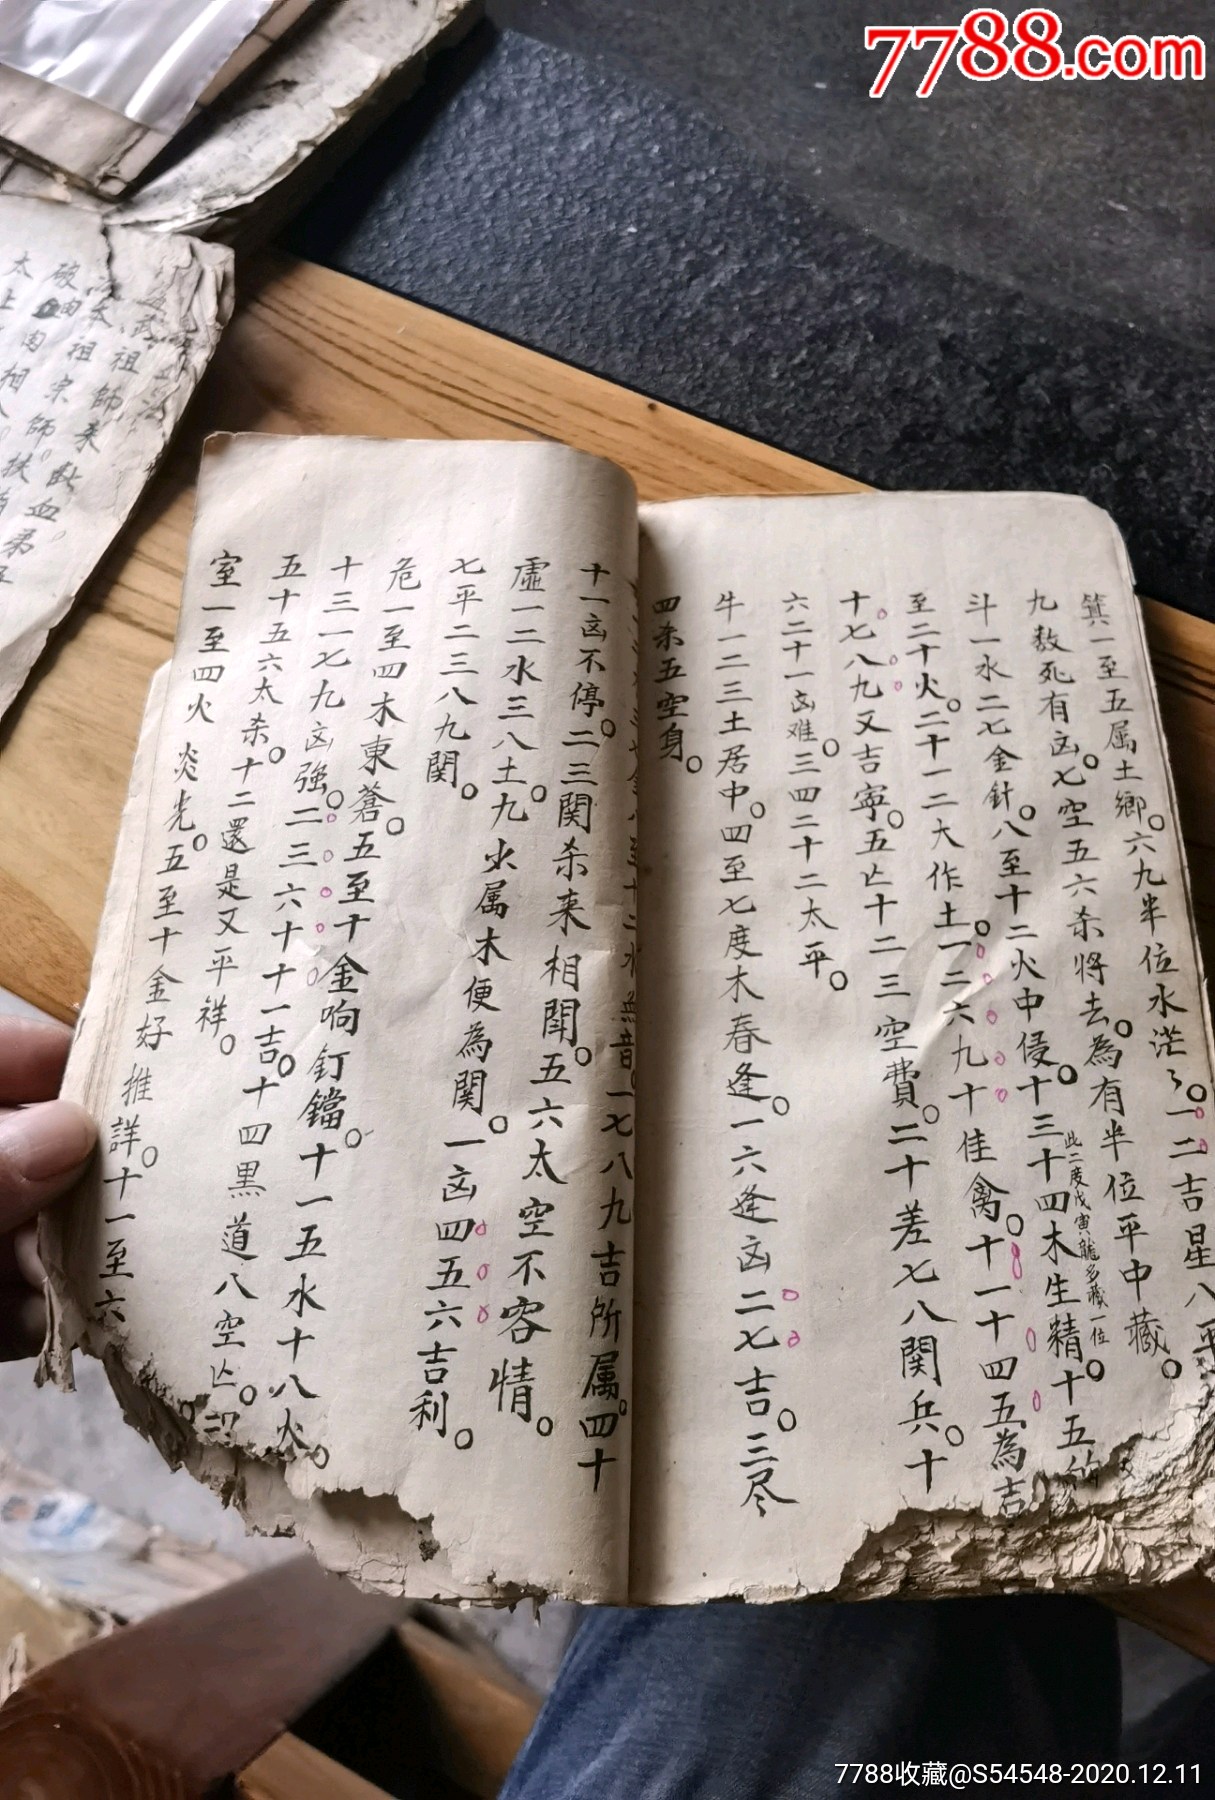 7788.com
箕一至五属土鄉。六九半位水茫々。一二吉星八平
九数死有凶。七空五六杀將去。為有半位平中藏。
斗一水二七金針。八至十二火中侵。十三十四木生精。十五
此二度戊寅龍多藏一位
至二十火。二十一二大作土。一二六九十佳禽。十一十四五為吉
十七八九又吉寧。五亡十二三空費。二十差七八関兵。十
六二十一凶难。三四二十二太平。
牛一二三土居中。四至七度木春逢。一六逢凶二七吉。三尽
四杀五空身。
無音。一七八九吉所属。四十
十一凶不停。二三関杀来相閗。五六太空不容情。
虛一二水三八土。九火属木便為関。一凶四五六吉利。
七平二三八九関。
危一至四木東蒼。五至十金响钉鐺。十一五水十八火。
十三一七九凶強。二三六十十一吉。十四黑道八空亡。
五十五六太杀。十二還是又平祥。
室一至四火炎光。五至十金好推詳。十一至六
祖師来
破 祖宗師。扶
太上
7788收藏@S54548-2020.12.11